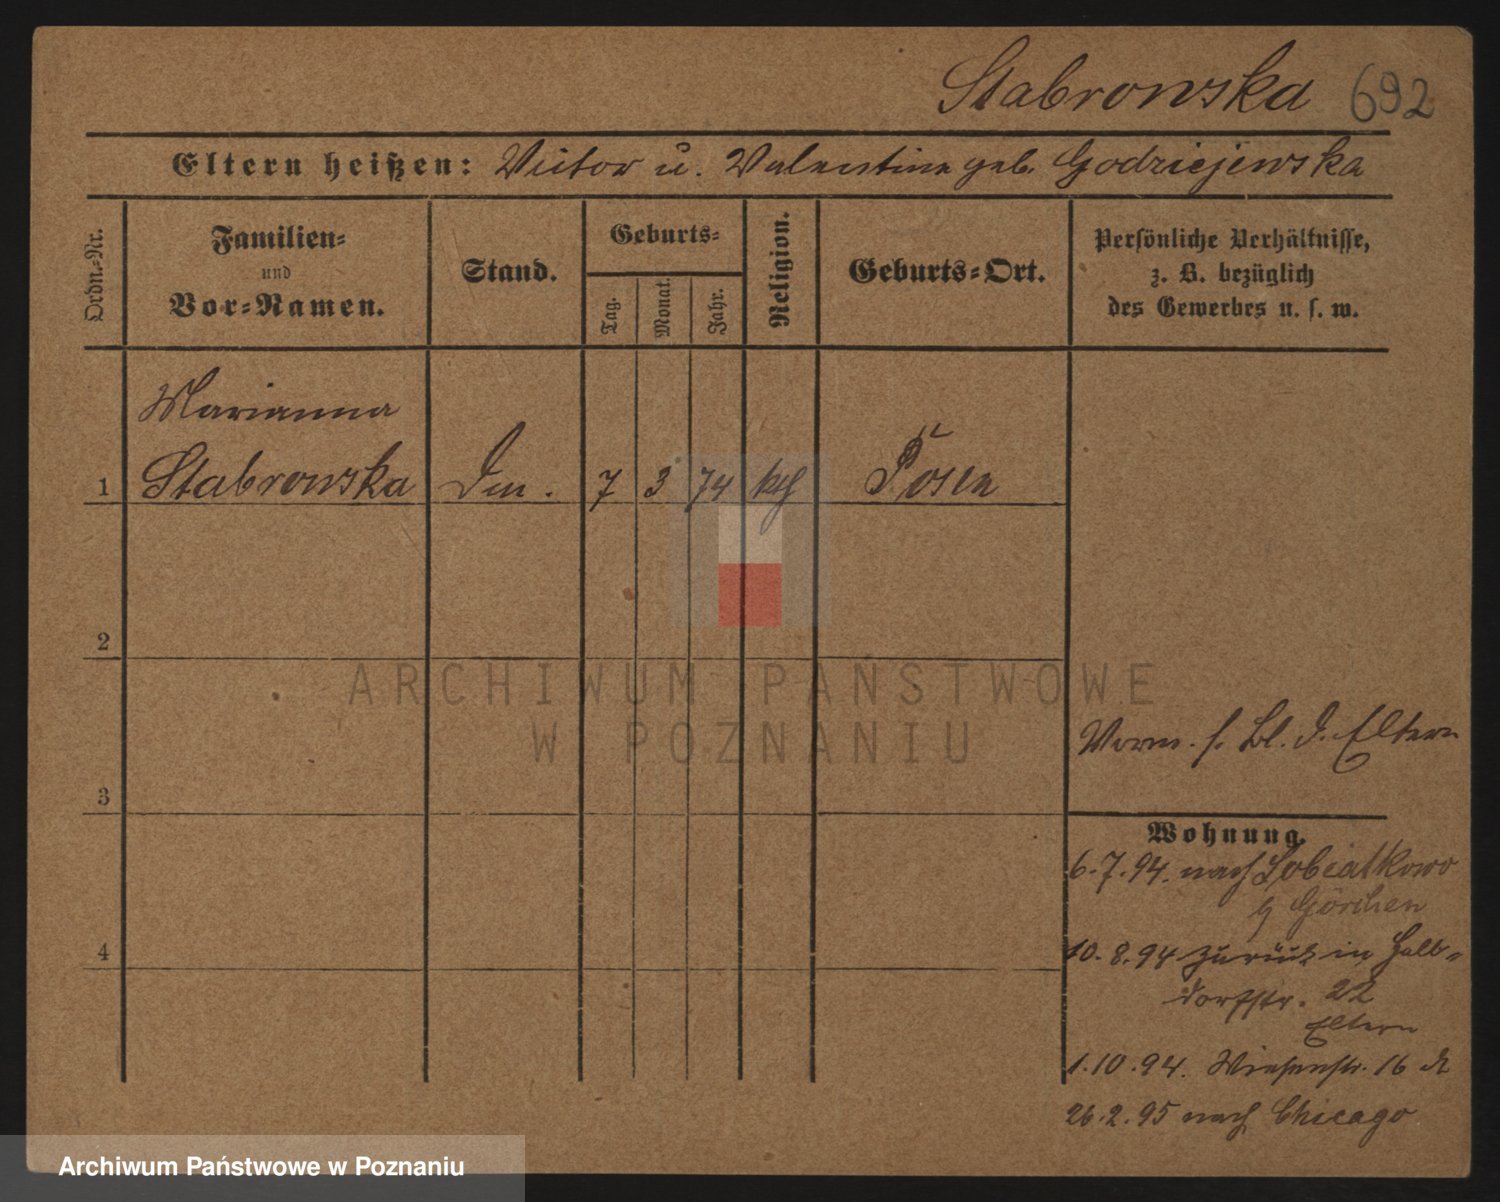 Stabrowska 692
Eltern heißen: Victor u. Valentine geb. Godziejewska
Ordn.-Nr.
Familien-
und
Vor-Namen.
Stand.
Geburts-
Tag.
Monat.
Jahr.
Religion.
Geburts-Ort.
Persönliche Verhältnisse,
z. B. bezüglich
des Gewerbes u. s. w.
Marianna
1 Stabrowska 7 3 74 kth Posen
2
ARCHIWUM PAŃSTWOWE
W POZNANIU
Verm. s. Bl. d. Eltern
3
Wohnung.
6.7.94. nach Sobialkowo
Görchen
4
10.8.94 zurück in Halb-
dorfstr. 22
Eltern
1.10.94. Wiesenstr. 16
26.2.95 nach Chicago
Archiwum Państwowe w Poznaniu